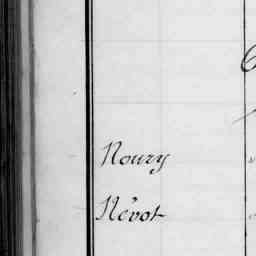 Noury
Névot